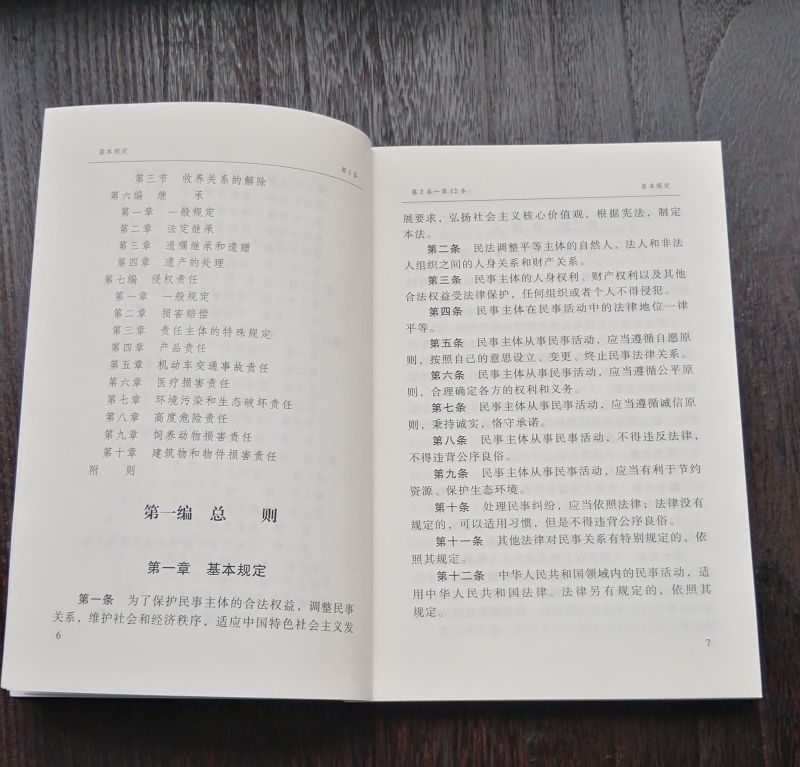 基本规定
第1条
第三节 收养关系的解除
第六编 继 承
第一章 一般规定
第二章 法定继承
第三章 遗嘱继承和遗赠
第四章 遗产的处理
第七编 侵权责任
第一章 一般规定
第二章 损害赔偿
第三章 责任主体的特殊规定
第四章 产品责任
第五章 机动车交通事故责任
第六章 医疗损害责任
第七章 环境污染和生态破坏责任
第八章 高度危险责任
第九章 饲养动物损害责任
第十章 建筑物和物件损害责任
附 则
第一编 总 则
第一章 基本规定
第一条 为了保护民事主体的合法权益，调整民事
关系，维护社会和经济秩序，适应中国特色社会主义发
6
第2条—第12条
基本规定
展要求，弘扬社会主义核心价值观，根据宪法，制定
本法。
第二条 民法调整平等主体的自然人、法人和非法
人组织之间的人身关系和财产关系。
第三条 民事主体的人身权利、财产权利以及其他
合法权益受法律保护，任何组织或者个人不得侵犯。
第四条 民事主体在民事活动中的法律地位一律
平等。
第五条 民事主体从事民事活动，应当遵循自愿原
则，按照自己的意思设立、变更、终止民事法律关系。
第六条 民事主体从事民事活动，应当遵循公平原
则，合理确定各方的权利和义务。
第七条 民事主体从事民事活动，应当遵循诚信原
则，秉持诚实，恪守承诺。
第八条 民事主体从事民事活动，不得违反法律，
不得违背公序良俗。
第九条 民事主体从事民事活动，应当有利于节约
资源、保护生态环境。
第十条 处理民事纠纷，应当依照法律；法律没有
规定的，可以适用习惯，但是不得违背公序良俗。
第十一条 其他法律对民事关系有特别规定的，依
照其规定。
第十二条 中华人民共和国领域内的民事活动，适
用中华人民共和国法律。法律另有规定的，依照其
规定。
7